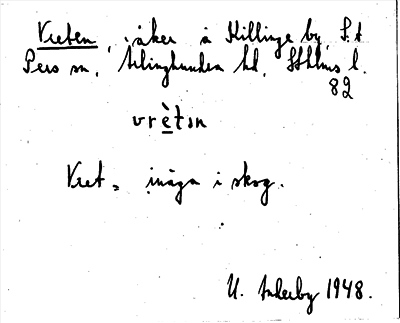 Vreten, åker å Killinge by, S:t
Pers sn, Ärlinghundra hd, Sthlms l.
82
vrètən
Vret = inäga i skog.
U. 1948.